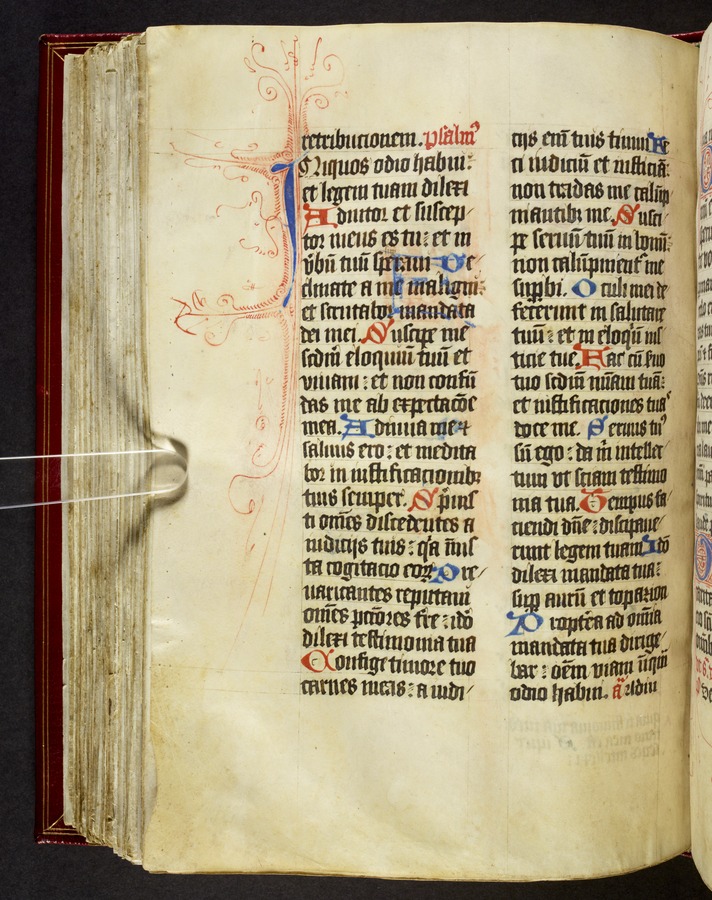 retribucionem. psalm9
Iniquos odio habui:
et legem tuam dilexi
Adiutor et suscep-
tor meus es tu: et in
v̄bū tuū speraui De/
clinate a me maligni:
et scrutabor mandata
dei mei. Suscipe me
scdm̄ eloquiū tuū et
viuam: et non confū
das me ab expectacōe
mea. Adiuua me et
saluus ero: et medita
bor in iustificacionibꝫ
tuis semper. Sp̄uis
ti omēs discedentes a
iudicijs tuis: q̄a iniūs
ta cogitacio eoꝝ Pre/
uaricantes reputaui
omēs pctōres t̄re: idō
dilexi testimonia tua
Confige timore tuo
carnes meas: a iudi/
cijs em̄ tuis timui Fe
ci iudiciū et iusticiā:
non tradas me calūp/
niantibꝫ me. Susci/
pe seruū tuū in bonū:
non calūpnient̄ me
supp̄bi. Oculi mei de
fecerunt in salutare
tuū: et in eloq̄ū ius
ticie tue. Fac cū s̄uo
tuo scdm̄ mīam tuā:
et iustificaciones tuas
doce me. Seruus tu9
sū ego: da m̄ intellec/
tum vt sciam testimo
nia tua. Tempus fa/
ciendi dn̄e: dissipaue/
runt legem tuam Idō
dilexi mandata tua:
sup̄ aurū et topazion
Propt̄ea ad omīa
mandata tua dirige/
bar: oēm viam iniq̄m
odio habui. aͣ xldiu